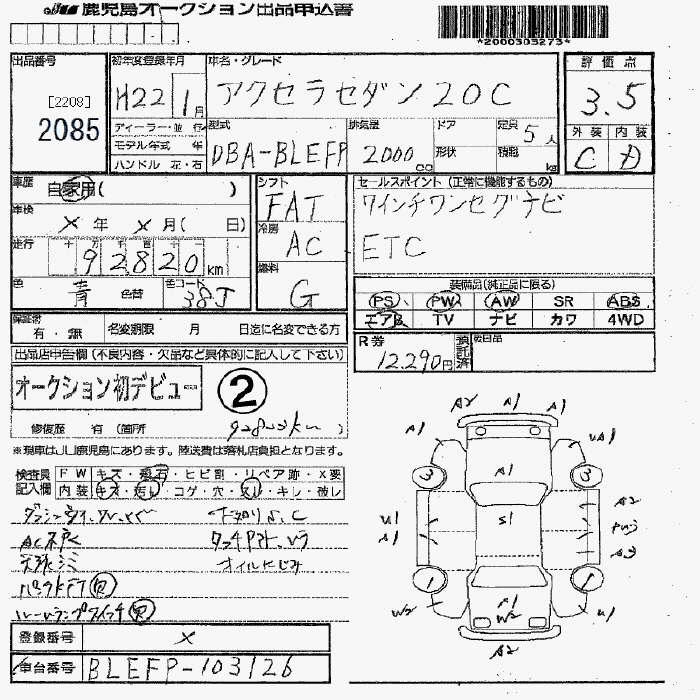 鹿児島オークション出品申込書
*2000303273*
出品番号
[2208]
2085
初年度登録年月
H22 1月
ディーラー・並 行
モデル年式 年
ハンドル 左・右
車名・グレード
アクセラセダン 20C
型式
DBA-BLEFP
排気量
2000 cc
ドア
形状
定員 5 人
積載 kg
評価点
3.5
外装 内装
C D
車歴 自家用( )
車検 × 年 × 月( 日)
走行 十 万 千 百 十 一
92820 km
色 青 色替
色コード 38J
シフト
FAT
冷房
AC
燃料
G
セールスポイント (正常に機能するもの)
ワインチワンセグナビ
ETC
装備品(純正品に限る)
PS PW AW SR ABS
エアB TV ナビ カワ 4WD
保証書 有・無
名変期限 月 日迄に名変できる方
R券
12,290円
預託済
後日品
出品店申告欄(不良内容・欠品など具体的に記入して下さい)
オークション初デビュー
2
修復歴 有 (箇所 )
92820km
※現車はJU鹿児島にあります。陸送費は落札店負担となります。
検査員記入欄
FW キズ・飛石・ヒビ割・リペア跡・X要
内装 キズ・汚れ・コゲ・穴・スレ・キレ・破レ
天張シミ
オイルにじみ
登録番号 ×
車台番号 BLEFP-103126
A2 A1 A1
A1
3 3
A1
S1
U1
A1
A2
A3
1 1
W2
A1
W2
U1
A2